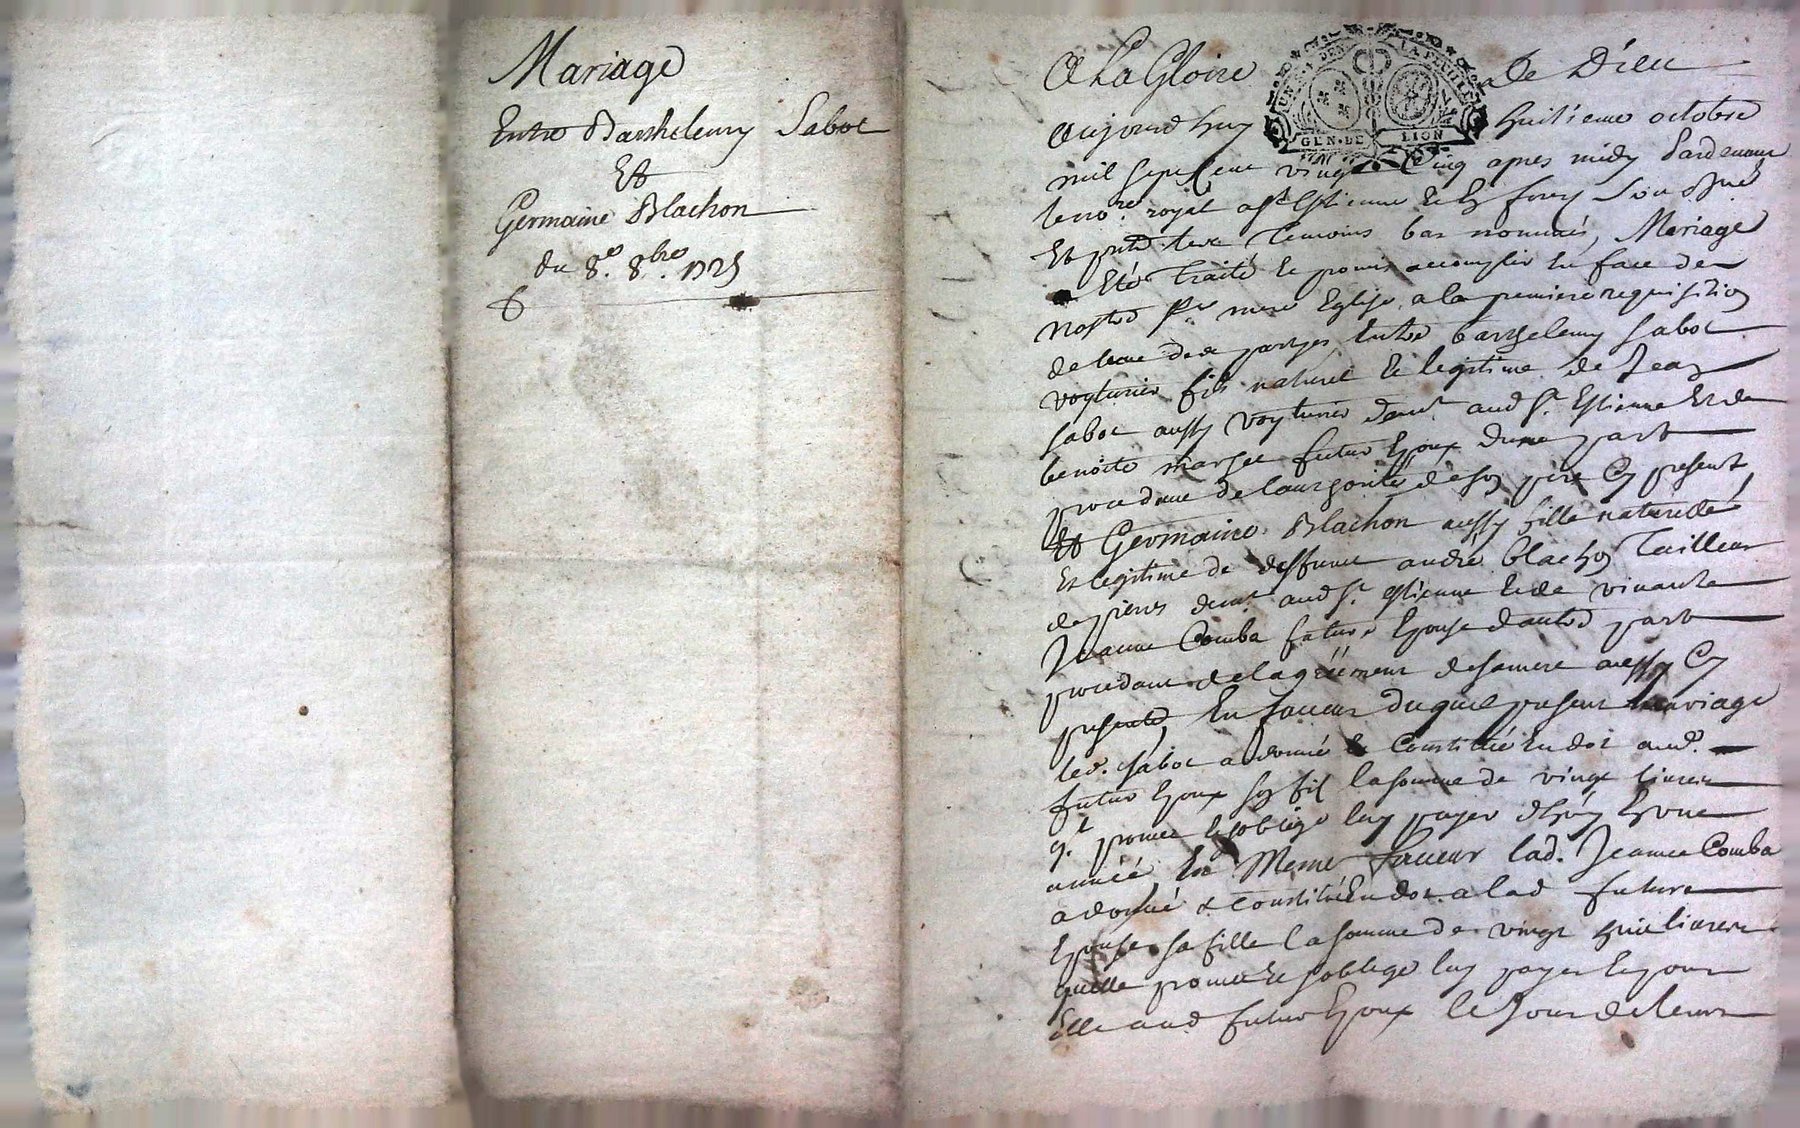 Mariage
Entre Barthelemy Sabot
Et
Germaine Blachon
du 8e. 8bre. 1725
A La Gloire de Dieu
UN SOL 4 DEN LA FEUILLE
GEN DE LION
Aujourd huy huitieme octobre
mil sept cent vingt Cinq apres midy Pardevant
le no.re royal a St Estienne en forez soussigné
Et presents les Temoins bas nommés, Mariage
a Eté Traité et promis accomplir En face de
nostre Ste mere Eglise a la premiere requisition
de lune des partyes Entre barthelemy Sabot
voyturier fils naturel et legitime de Jean
Sabot aussy voyturier demt. aud St. Estienne Et de
benoite futur Epoux dune part
procedant de lauthorité de son pere Cy present
Et Germaine Blachon aussy fille naturelle
Et legitime de deffunct andré blachon Tailleur
de pieres demt. aud St. Estienne et de vivante
Jeanne Comba future Epouse dautre part
procedant de lagrément de sa mere aussy Cy
presente, En faveur duquel present mariage
led. Sabot a donné & Constitué En dot aud.
futur Epoux son fils la somme de vingt livres
ql. promet et soblige luy payer dhuy En une
année, En Meme faveur lad. Jeanne Comba
a donné & Constitué En dot a lad future
Epouse sa fille la somme de vingt huit livres
quelle promet et soblige luy payer et pour
Elle aud futur Epoux le Jour de leurs